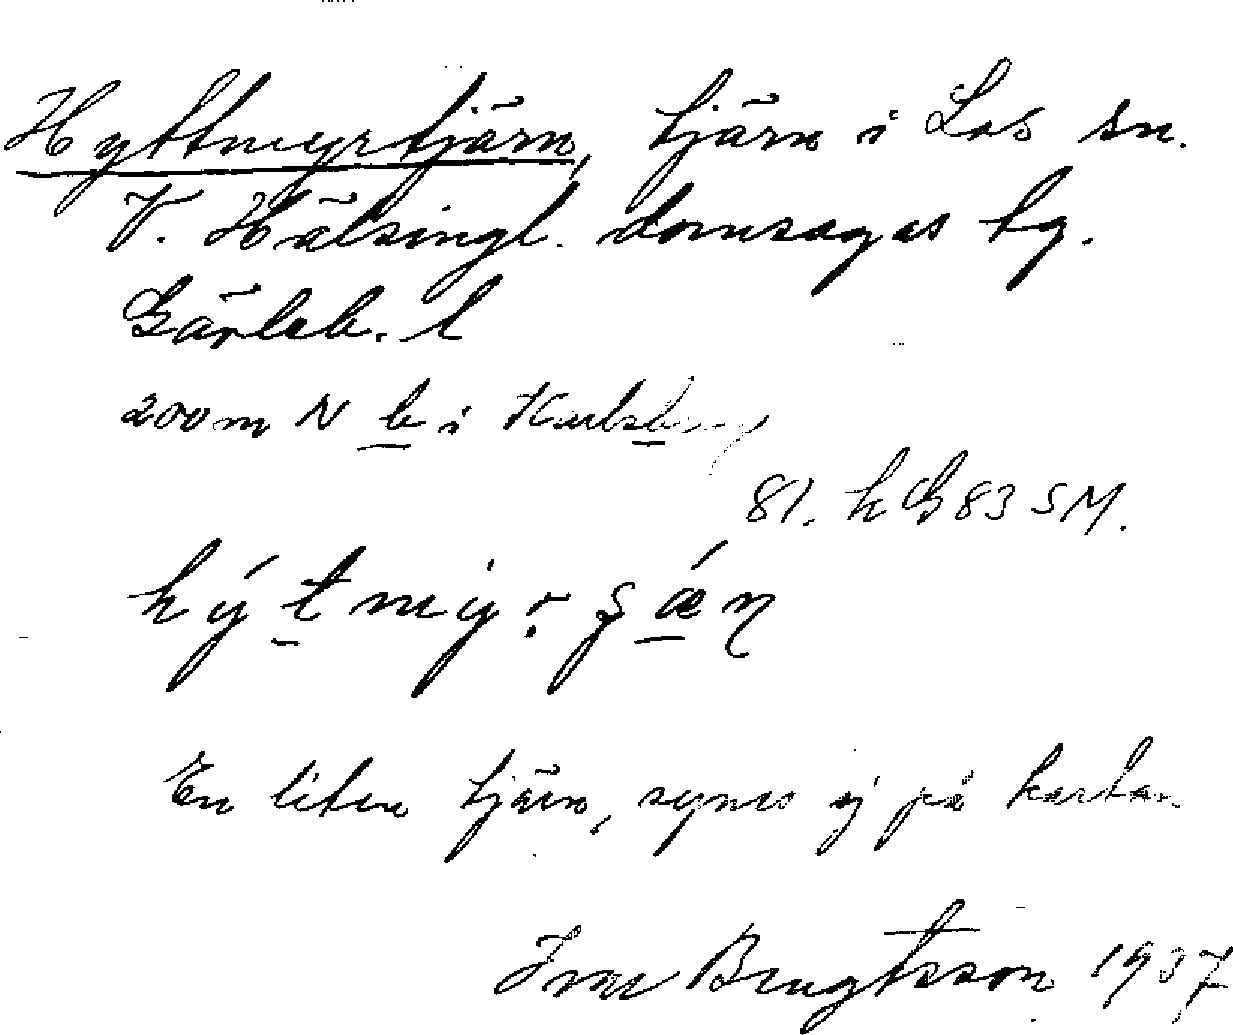 Hyttmyrtjärn, tjärn i Los sn.
V. Hälsingl. domsagas tg.
Gävleb. l
200 m N b i Karlsberg
81. h G 83 SM.
En liten tjärn, synes ej på kartan
Bengtsson 1937